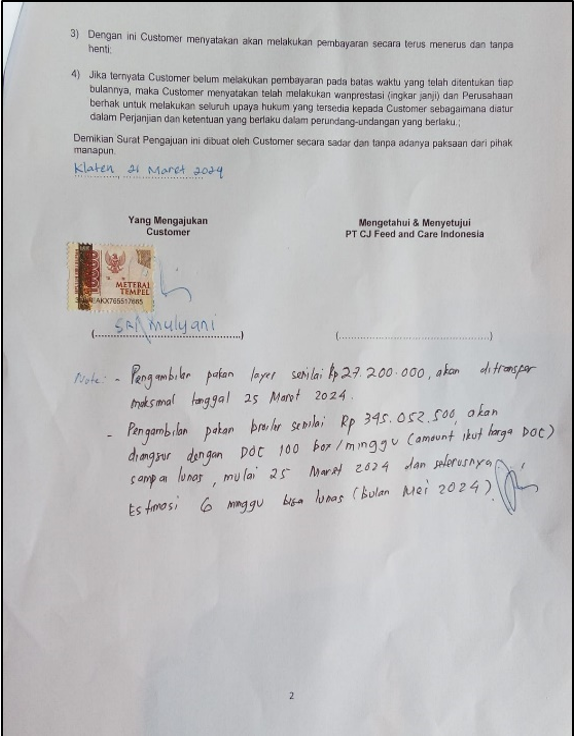 3) Dengan ini Customer menyatakan akan melakukan pembayaran secara terus menerus dan tanpa
henti;
4) Jika ternyata Customer belum melakukan pembayaran pada batas waktu yang telah ditentukan tiap
bulannya, maka Customer menyatakan telah melakukan wanprestasi (ingkar janji) dan Perusahaan
berhak untuk melakukan seluruh upaya hukum yang tersedia kepada Customer sebagaimana diatur
dalam Perjanjian dan ketentuan yang berlaku dalam perundang-undangan yang berlaku.;
Demikian Surat Pengajuan ini dibuat oleh Customer secara sadar dan tanpa adanya paksaan dari pihak
manapun.
Klaten, 21 Maret 2024
Yang Mengajukan
Customer
Mengetahui & Menyetujui
PT CJ Feed and Care Indonesia
10000
METERAI
TEMPEL
AKX765517665
(Sri Mulyani)
(........................................)
Note: - Pengambilan pakan layer senilai Rp 27.200.000, akan ditransper
maksimal tanggal 25 Maret 2024.
- Pengambilan pakan broiler senilai Rp 395.052.500, akan
diangsur dengan DOC 100 box/minggu (amount ikut harga DOC)
sampai lunas, mulai 25 Maret 2024 dan seterusnya.
Estimasi 6 minggu bisa lunas (Bulan Mei 2024).
2